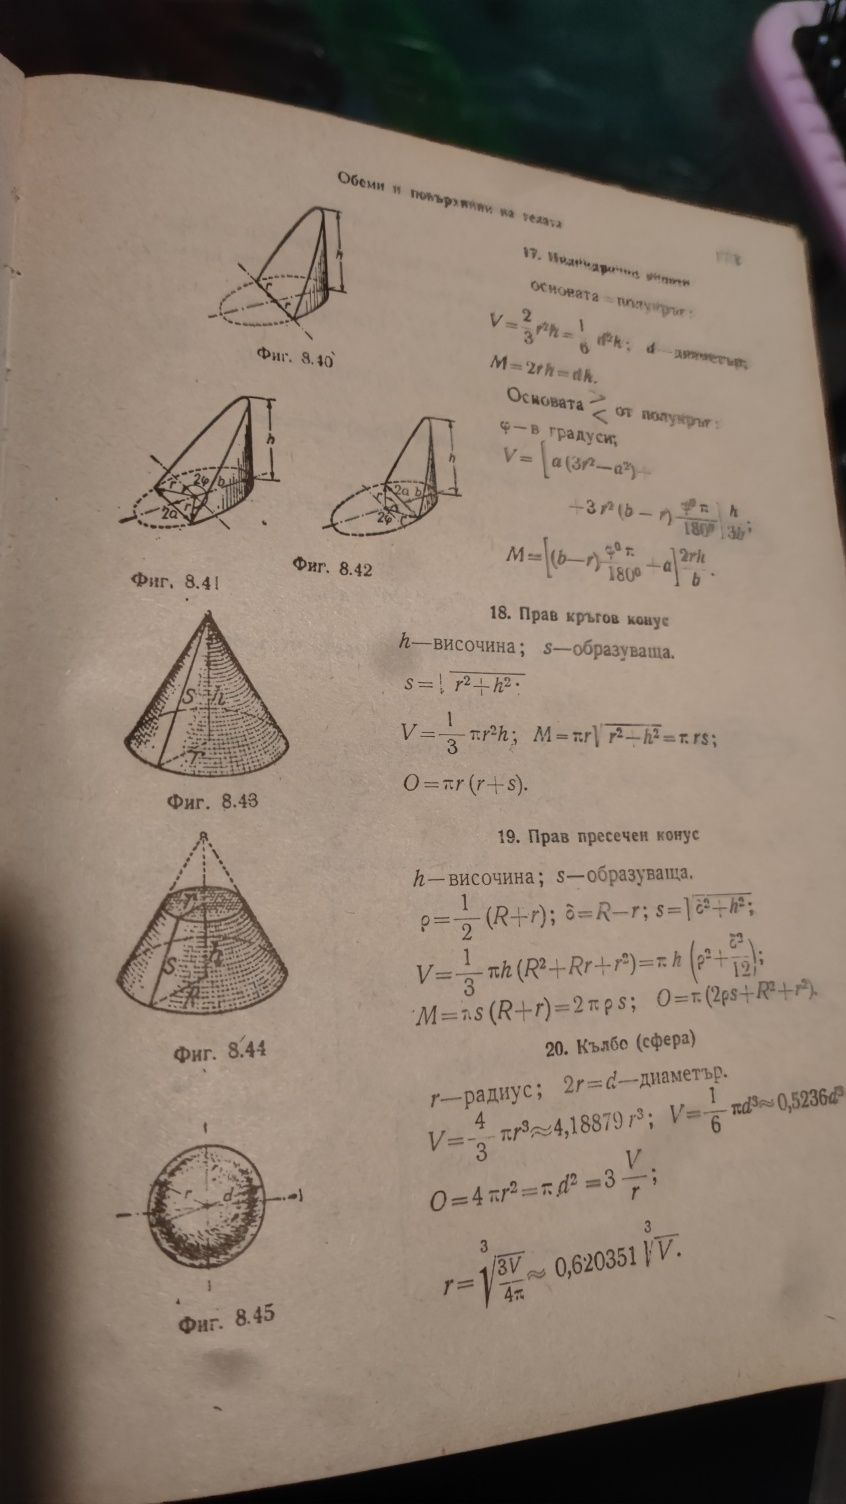 Обеми и повърхнини на телата
17. Цилиндричен
основата — полукръг:
V = 2/3 r²h = 1/6 d²h; d — диаметър;
M = 2rh = dh.
Фиг. 8.40
Основата ≷ от полукръг:
φ — в градуси;
V = [a (3r² — a²) +
+ 3r² (b — r) φ⁰π/180⁰] h/3b;
M = [(b — r) φ⁰π/180⁰ + a] 2rh/b.
h
r
r
h
2φ
b
r
r
2a
h
2a
b
2φ
r
Фиг. 8.41
Фиг. 8.42
18. Прав кръгов конус
h — височина; s — образуваща.
s = √r² + h²;
V = 1/3 πr²h; M = πr√r² + h² = πrs;
O = πr (r + s).
S
h
r
Фиг. 8.43
19. Прав пресечен конус
h — височина; s — образуваща.
ρ = 1/2 (R + r); δ = R — r; s = √δ² + h²;
V = 1/3 πh (R² + Rr + r²) = πh (ρ² + δ²/12);
M = πs (R + r) = 2πρs; O = π (2ρs + R² + r²).
r
S
h
R
Фиг. 8.44
20. Кълбо (сфера)
r — радиус; 2r = d — диаметър.
V = 4/3 πr³ ≈ 4,18879 r³; V = 1/6 πd³ ≈ 0,5236d³
O = 4πr² = πd² = 3 V/r;
r = ∛3V/4π ≈ 0,620351 ∛V.
r
d
Фиг. 8.45